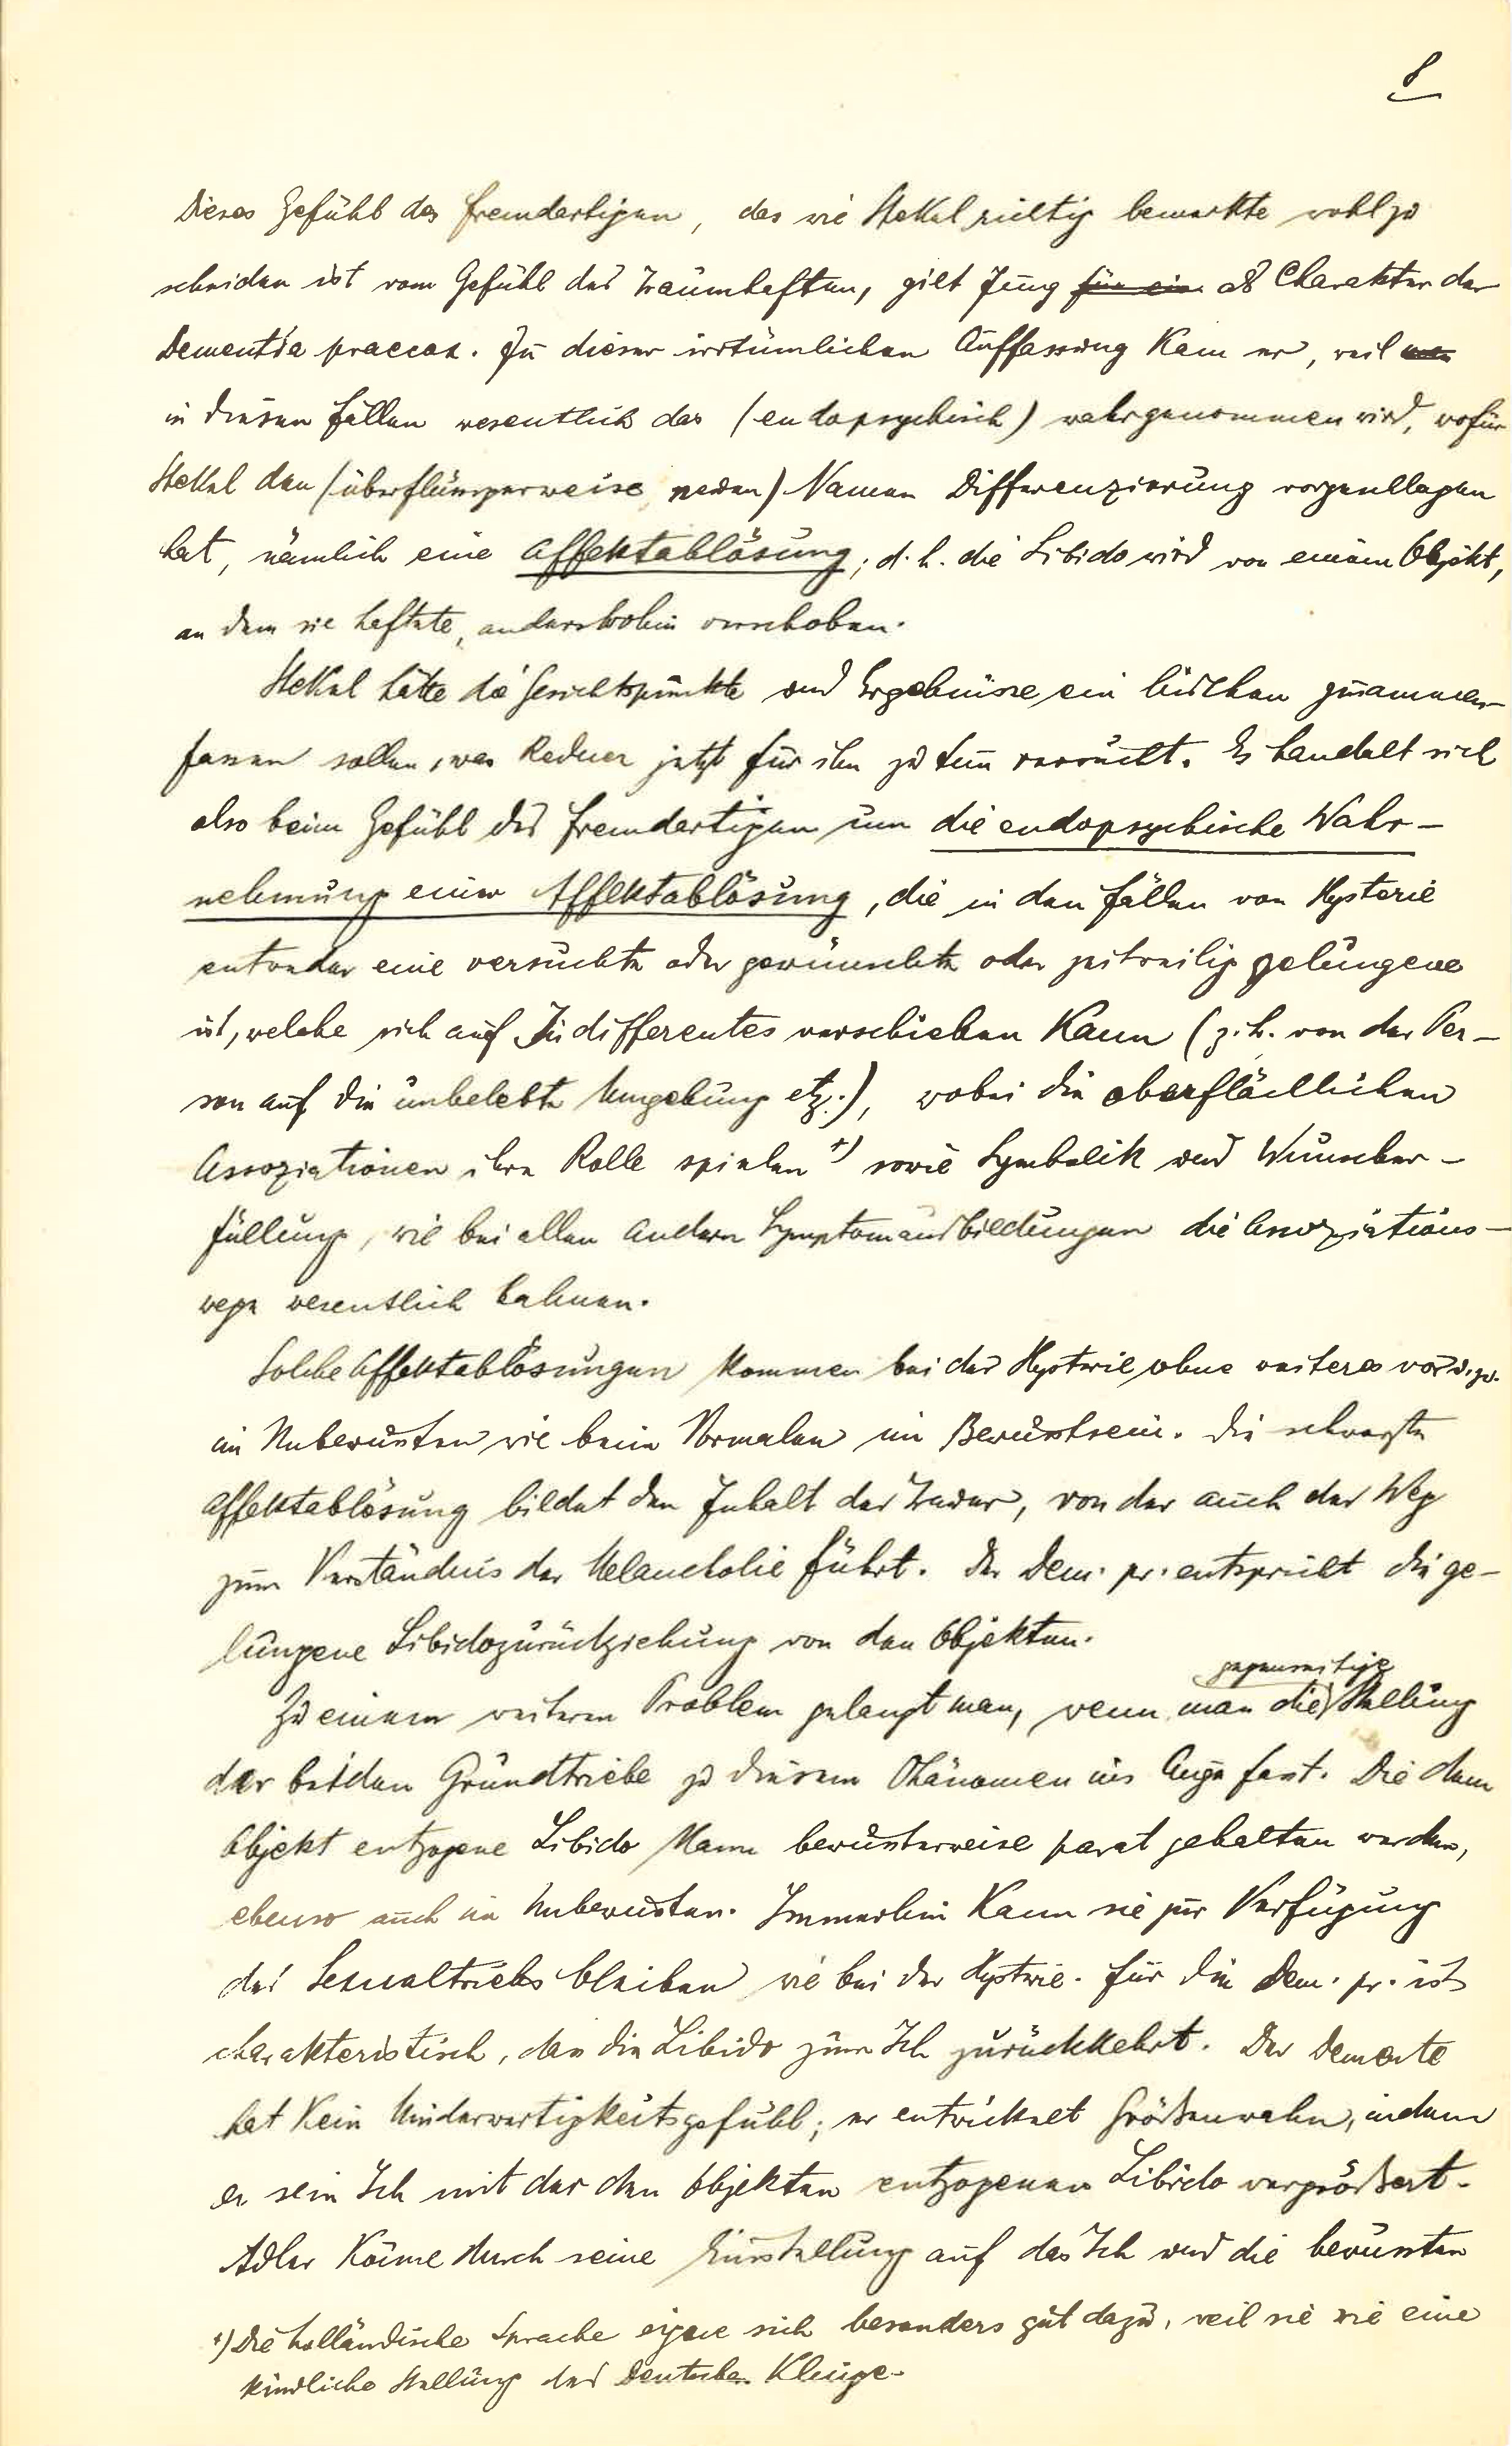 8
Dieses Gefühl des fremdartigen, das wie Stekel richtig bemerkte wohl zu
scheiden ist vom Gefühl des Traumhaften, gilt Jung für ein als Charakter der
Dementia praecox. Zu dieser irrtümlichen Auffassung kam er, weil man
in diesen Fällen wesentlich das (endopsychisch) wahrgenommen wird, wofür
Stekel den (überflüssigerweise neuen) Namen Differenzierung vorgeschlagen
hat, nämlich eine Affektablösung; d.h. die Libido wird von einem Objekt,
an dem sie haftete, anderswohin verschoben.
Stekel hätte die Gesichtspunkte und Ergebnisse ein bischen zusammen-
fassen sollen, was Redner jetzt für ihn zu tun versucht. Es handelt sich
also beim Gefühl des fremdartigen um die endopsychische Wahr-
nehmung einer Affektablösung, die in den Fällen von Hysterie
entweder eine versuchte oder gewünschte oder zeitweilig gelungene
ist, welche sich auf Indifferentes verschieben kann (z.b. von der Per-
son auf die unbelebte Umgebung etz.), wobei die oberflächlichen
Assoziationen ihre Rolle spielen +) sowie Symbolik und Wunscher-
füllung, wie bei allen andern Symptomausbildungen die Assoziations-
wege wesentlich bahnen.
Solche Affektablösungen kommen bei der Hysterie ohne weiteres vor u. zw.
im Unbewußten wie beim Normalen im Bewußtsein. Die schwerste
Affektablösung bildet den Inhalt der Trauer, von der auch der Weg
zum Verständnis der Melancholie führt. Der Dem. pr. entspricht die ge-
lungene Libidozurückziehung von den Objekten.
gegenseitige
Zu einem weiteren Problem gelangt man, wenn man die Stellung
der beiden Grundtriebe zu diesem Phänomen ins Auge fasst. Die dem
Objekt entzogene Libido kann bewußterweise parat gehalten werden,
ebenso auch im Unbewußten. Immerhin kann sie zur Verfügung
des Sexualtriebs bleiben wie bei der Hysterie. Für die Dem. pr. ist
charakteristisch, dass die Libido zum Ich zurückkehrt. Der Demente
hat kein Minderwertigkeitsgefühl; er entwickelt Größenwahn, indem
er sein Ich mit der den Objekten entzogenen Libido vergrößert.
Adler käme durch seine Einstellung auf das Ich und die bewussten
+) Die holländische Sprache eigne sich besonders gut dazu, weil sie wie eine
kindliche Stellung des Deutschen klinge.